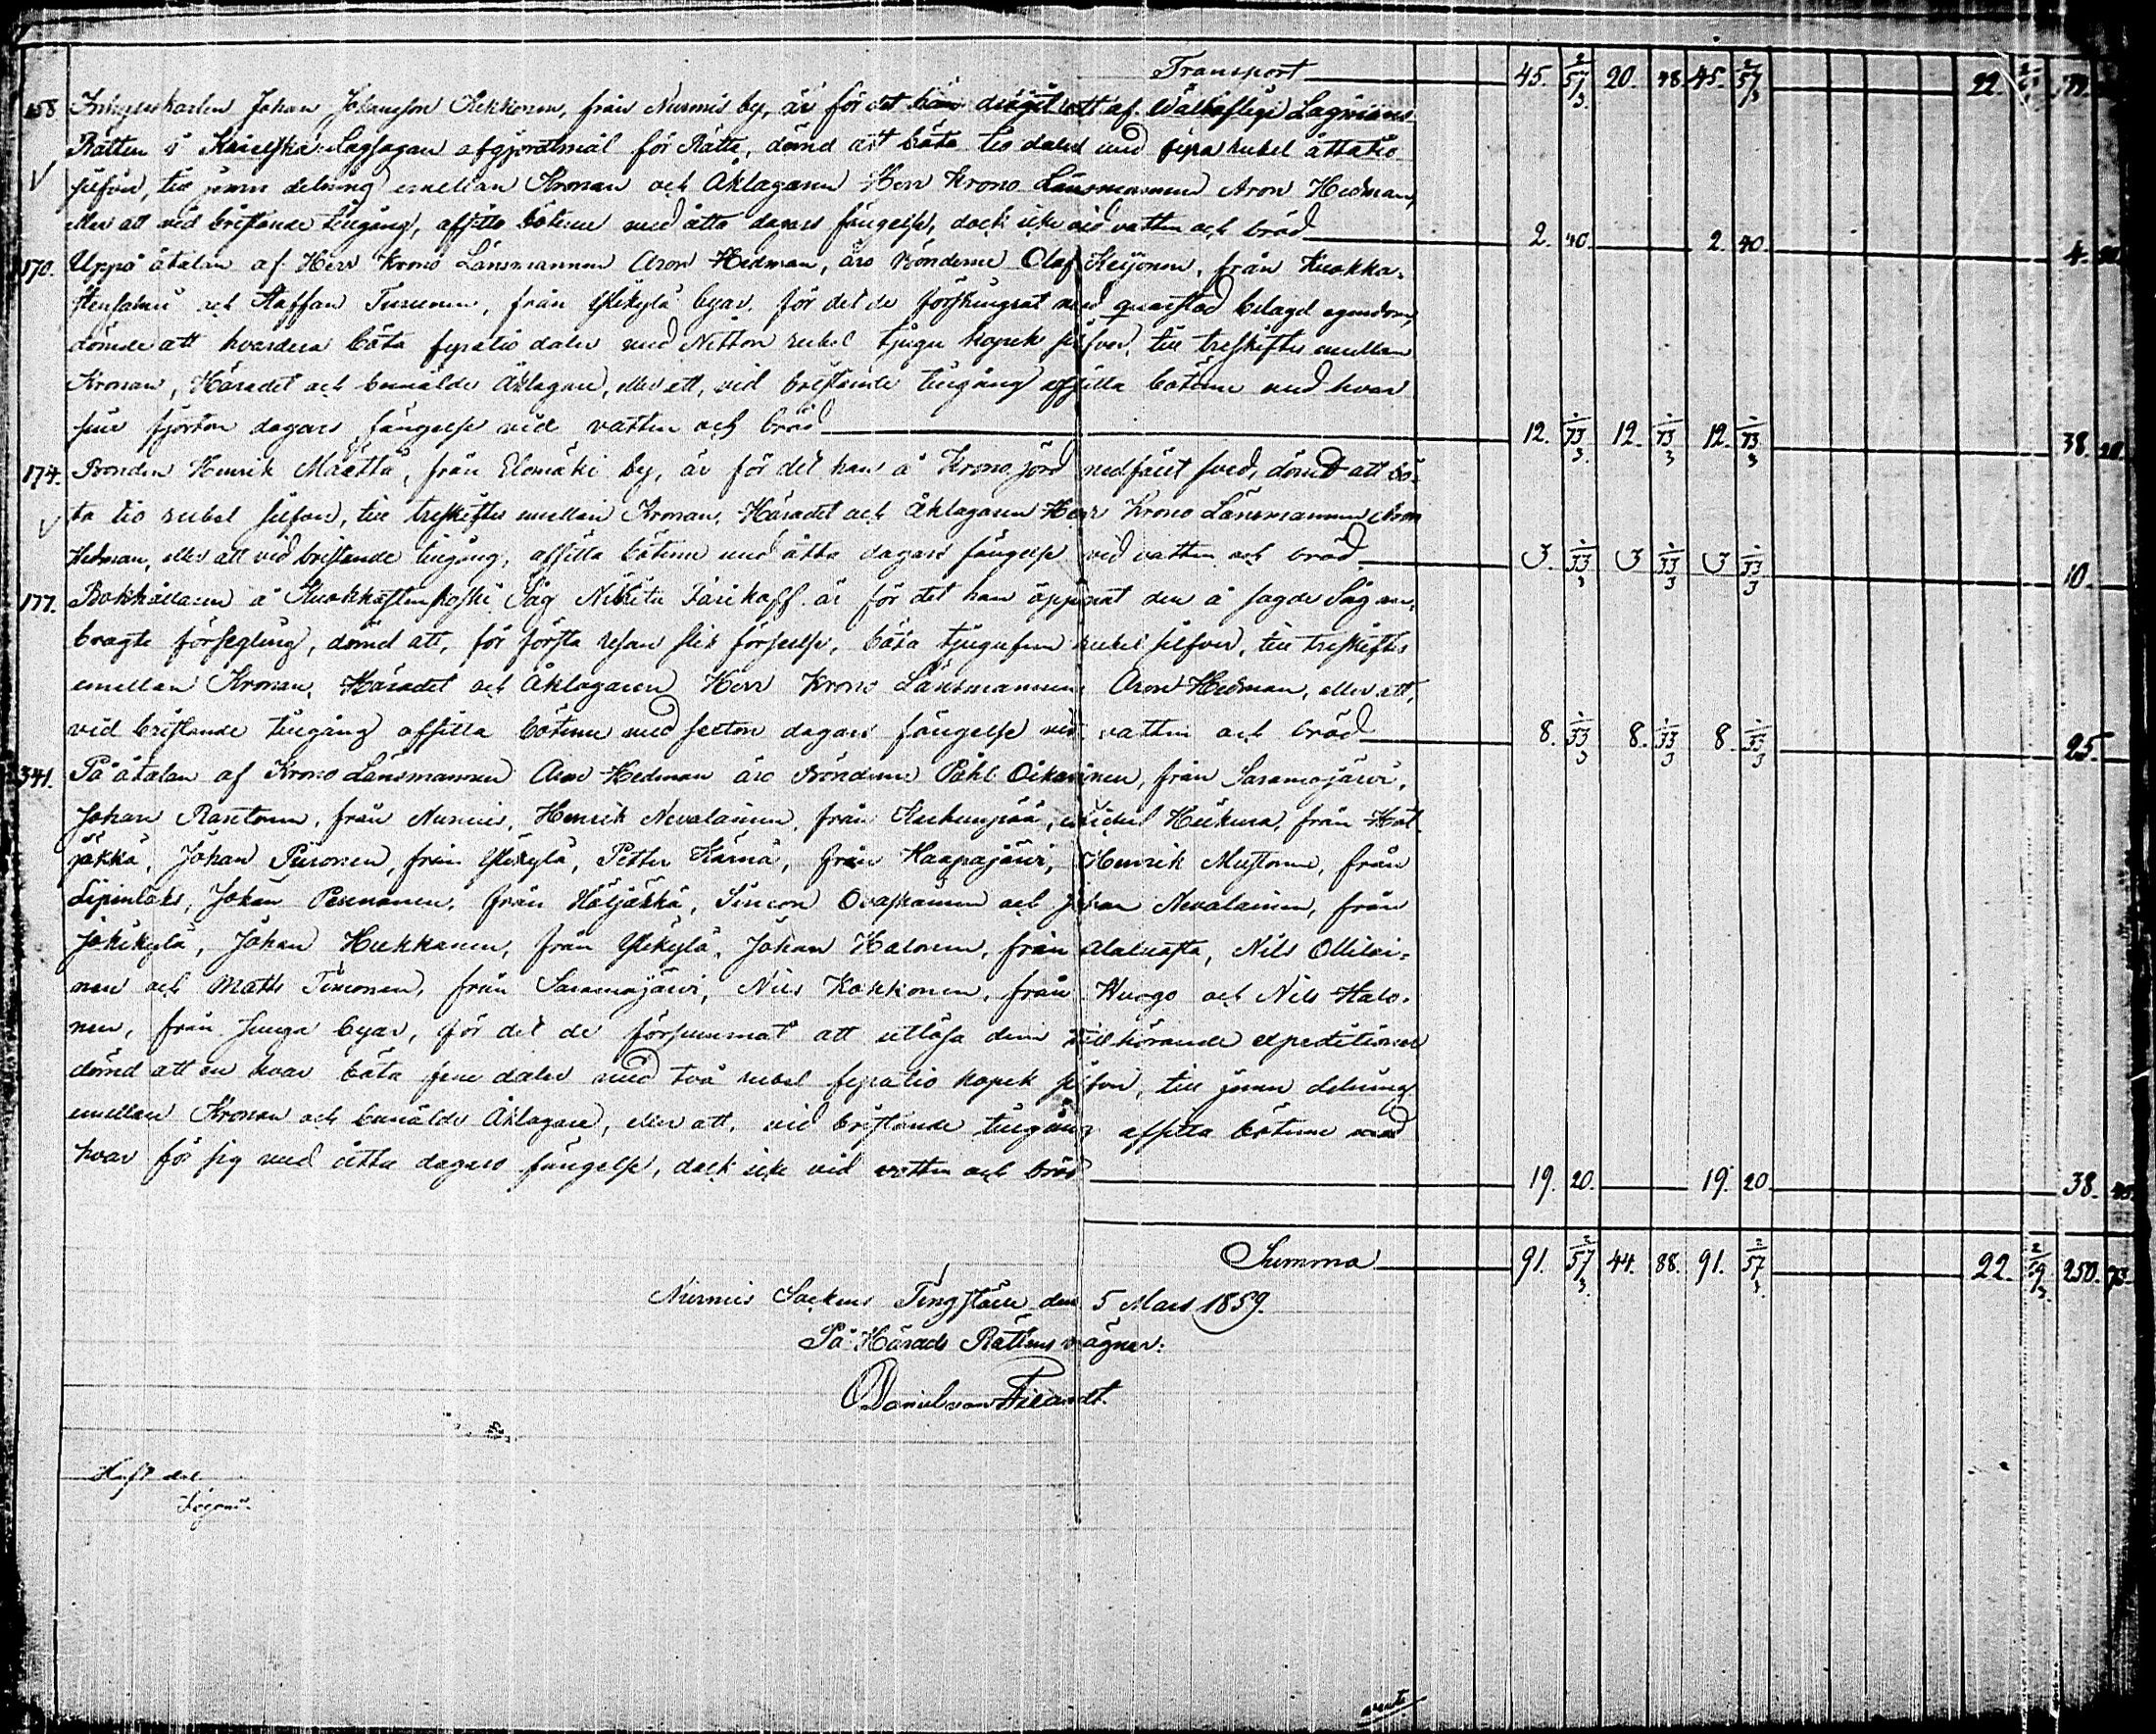 Transport 45. 57 2/3 20. 48. 45. 57 2/3 22.
158. Inhyseskarlen Johan Johansson Kekkonen, från Nurmis by, är för det han dragit ett af Wälloflige Lagmans
Rätten i Karelska Lagsagan afgjordt mål för Rätta, dömd att böta tio daler med fyra rubel åttatio
silfver, till jemn delning emellan Kronan och Åklagaren Herr Krono Länsmannen Aron Hedman,
eller att vid bristande tillgång, afsitta böterne med åtta dagars fängelse, dock icke vid vatten och bröd 2. 40. 2. 40. 4. 80.
170. Uppå åtalan af Herr Krono Länsmannen Aron Hedman, äro Bönderne Olof Keijonen, från Kuokka-
stensalmi och Staffan Turunen, från Ylikylä byar, för det de förskingrat med qvarstad belagd egendom,
dömde att hvardera böta fyratio daler med Nitton rubel tjugu kopek silfver, till treskiftes emellan
Kronan, Häradet och bemälde Åklagare, eller att, vid bristande tillgång afsitta böterne med hvar
sine fjorton dagars fängelse vid vatten och bröd 12. 73 1/3 12. 73 1/3 12. 73 1/3 38. 20.
174. Bonden Henrik Määttä, från Elomäki by, är för det han å Krono jord nedfällt sved, dömd att bö-
ta tio rubel silfver, till treskiftes emellan Kronan, Häradet och Åklagaren Herr Krono Länsmannen Aron
Hedman, eller att vid bristande tillgång, afsitta böterne med åtta dagars fängelse vid vatten och bröd 3 33 1/3 3 33 1/3 3 33 1/3 10.
177. Bokhållaren å Kuokkastenkoski Såg Nikita Farikoff är för det han öppnat den å sagde Såg an-
bragte försegling, dömd att, för första resan slik förseelse, böta tjugufem rubel silfver, till treskiftes
emellan Kronan, Häradet och Åklagaren Herr Krono Länsmannen Aron Hedman, eller att,
vid bristande tillgång afsitta böterne med sexton dagars fängelse vid vatten och bröd 8. 33 1/3 8. 33 1/3 8 33 1/3 25.
341. På åtalan af Krono Länsmannen Aron Hedman äro Bönderne Påhl Oikarinen, från Saramojärvi,
Johan Rautonen, från Nurmis, Henrik Nevalainen, från Kuhmopää, Michel Heikura, från Höl-
jäkkä, Johan Puronen, från Ylikylä, Petter Kärnä, från Haapajärvi, Henrik Mustonen, från
Lipinlaks, Johan Pennanen, från Höljäkkä, Simon Ovaskainen och Johan Nevalainen, från
Jokikylä, Johan Hukkanen, från Ylikylä, Johan Halonen, från Alaluosta, Nils Ollikai-
nen och Matts Timonen, från Saramojärvi, Nils Kokkonen, från Wuogo och Nils Halo-
nen, från Junga byar, för det de försummat att utlösa dem tillhörande expeditioner
dömd att en hvar böta fem daler med två rubel fyratio kopek silfver, till jemn delning
emellan Kronan och bemälde Åklagare, eller att, vid bristande tillgång afsitta böterne med
hvar för sig med åtta dagars fängelse, dock icke vid vatten och bröd 19. 20. 19. 20 38. 40.
Summa 91. 57 2/3 44. 88. 91. 57 2/3 22. 69 2/3 250. 73.
Nurmis Sockens Tingställe den 5 Mars 1859.
På Härads Rättens vägnar:
Daniel von Fieandt.